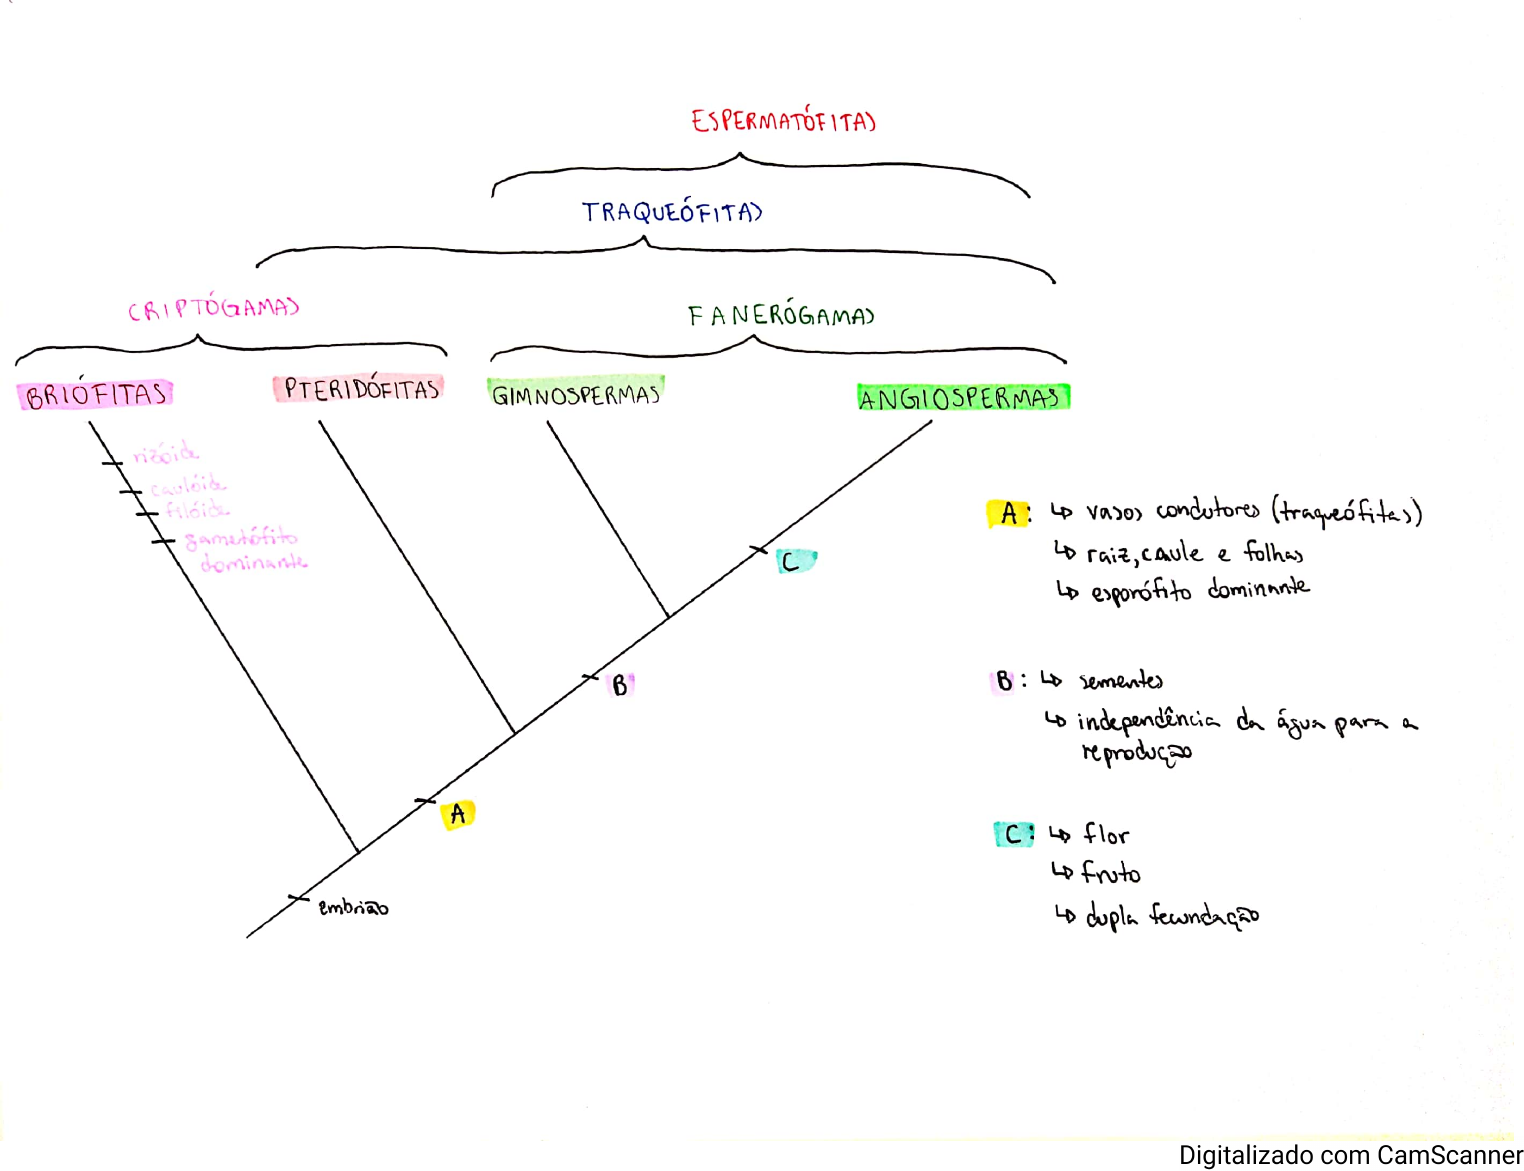 ESPERMATÓFITAS
TRAQUEÓFITAS
CRIPTÓGAMAS
FANERÓGAMAS
BRIÓFITAS
PTERIDÓFITAS
GIMNOSPERMAS
ANGIOSPERMAS
rizóide
caulóide
filóide
gametófito
dominante
C
B
A
embrião
A: ↳ vasos condutores (traqueófitas)
↳ raiz, caule e folhas
↳ esporófito dominante
B: ↳ sementes
↳ independência da água para a
reprodução
C: ↳ flor
↳ fruto
↳ dupla fecundação
Digitalizado com CamScanner